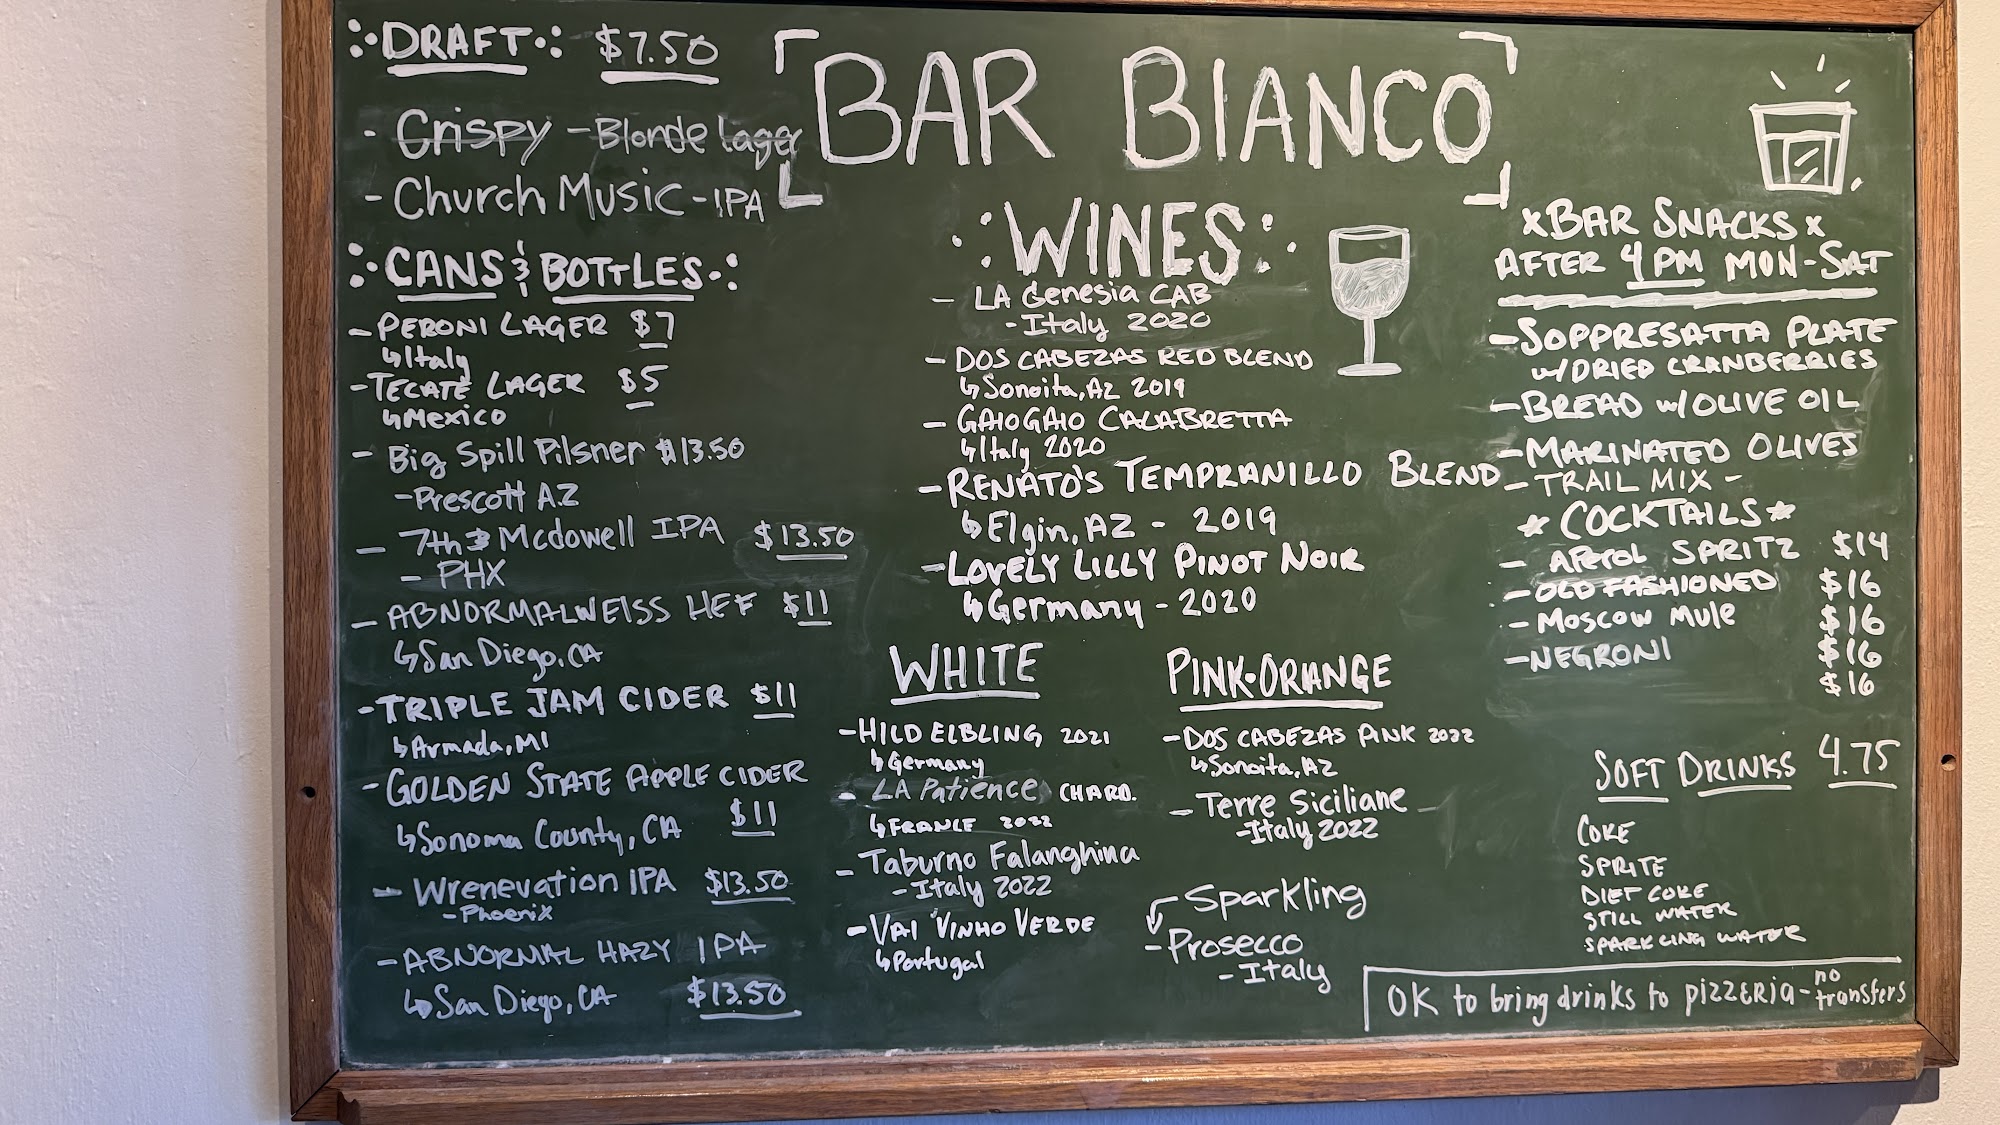 DRAFT $7.50
- Crispy - Blonde lager
- Church Music - IPA
CANS & BOTTLES
- PERONI LAGER $7
↳ Italy
- TECATE LAGER $5
↳ Mexico
- Big Spill Pilsner $13.50
- Prescott AZ
- 7th & Mcdowell IPA $13.50
- PHX
- ABNORMALWEISS HEF $11
↳ San Diego, CA
- TRIPLE JAM CIDER $11
↳ Armada, MI
- GOLDEN STATE APPLE CIDER
↳ Sonoma County, CA $11
- Wrenevation IPA $13.50
- Phoenix
- ABNORMAL HAZY IPA
↳ San Diego, CA $13.50
BAR BIANCO
WINES
- LA Genesia CAB
- Italy 2020
- DOS CABEZAS RED BLEND
↳ Sonoita, AZ 2019
- GAIOGAIO CALABRETTA
↳ Italy 2020
- RENATO'S TEMPRANILLO BLEND
↳ Elgin, AZ - 2019
- LOVELY LILLY PINOT NOIR
↳ Germany - 2020
WHITE
- HILD ELBLING 2021
↳ Germany
- LA Patience CHARD.
↳ FRANCE 2022
- Taburno Falanghina
- Italy 2022
- VAI VINHO VERDE
↳ Portugal
PINK·ORANGE
- DOS CABEZAS PINK 2022
↳ Sonoita, AZ
- Terre Siciliane
- Italy 2022
Sparkling
- Prosecco
- Italy
x BAR SNACKS x
AFTER 4PM MON-SAT
- SOPPRESATTA PLATE
w/DRIED CRANBERRIES
- BREAD w/OLIVE OIL
- MARINATED OLIVES
- TRAIL MIX -
* COCKTAILS *
- APEROL SPRITZ $14
- OLD FASHIONED $16
- MOSCOW MULE $16
- NEGRONI $16
$16
SOFT DRINKS 4.75
COKE
SPRITE
DIET COKE
STILL WATER
SPARKLING WATER
OK to bring drinks to pizzeria - no transfers